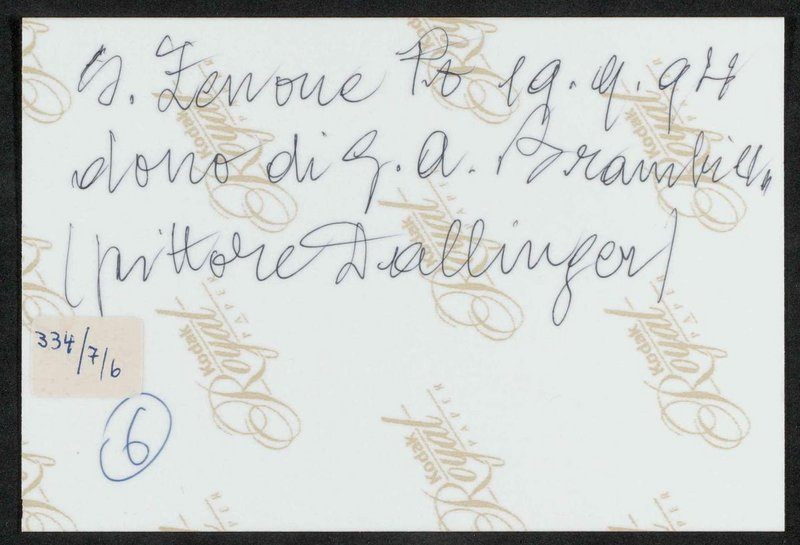 S. Zenone Po 19.9.974
dono di G. A. Brambilla
(pittore Dallinger)
334/7/6
6
Kodak
Royal
PAPER